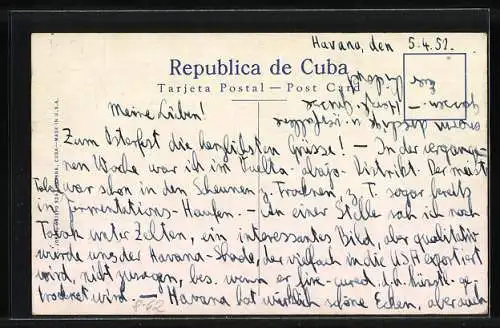 Havana, den 5.4.51.
Republica de Cuba
Tarjeta Postal — Post Card
Meine Lieben!
Zum Osterfest die herzlichsten Grüsse! – In der vergange-
nen Woche war ich im Vuelta-abajo-Distrikt. Der meiste
Tabak war schon in den Scheunen z. Trocknen, z. T. sogar bereits
in Fermentations-Haufen. – An einer Stelle sah ich noch
Tabak unter Zelten, ein interessantes Bild, aber qualitativ
würde uns der Havana-Shade, der vielfach in die USA exportiert
wird, nicht zusagen, bes. wenn er fire-cured, d.h. künstl. ge-
trocknet wird. – Havana hat wirklich schöne Ecken, aber auch
MADE IN U.S.A.